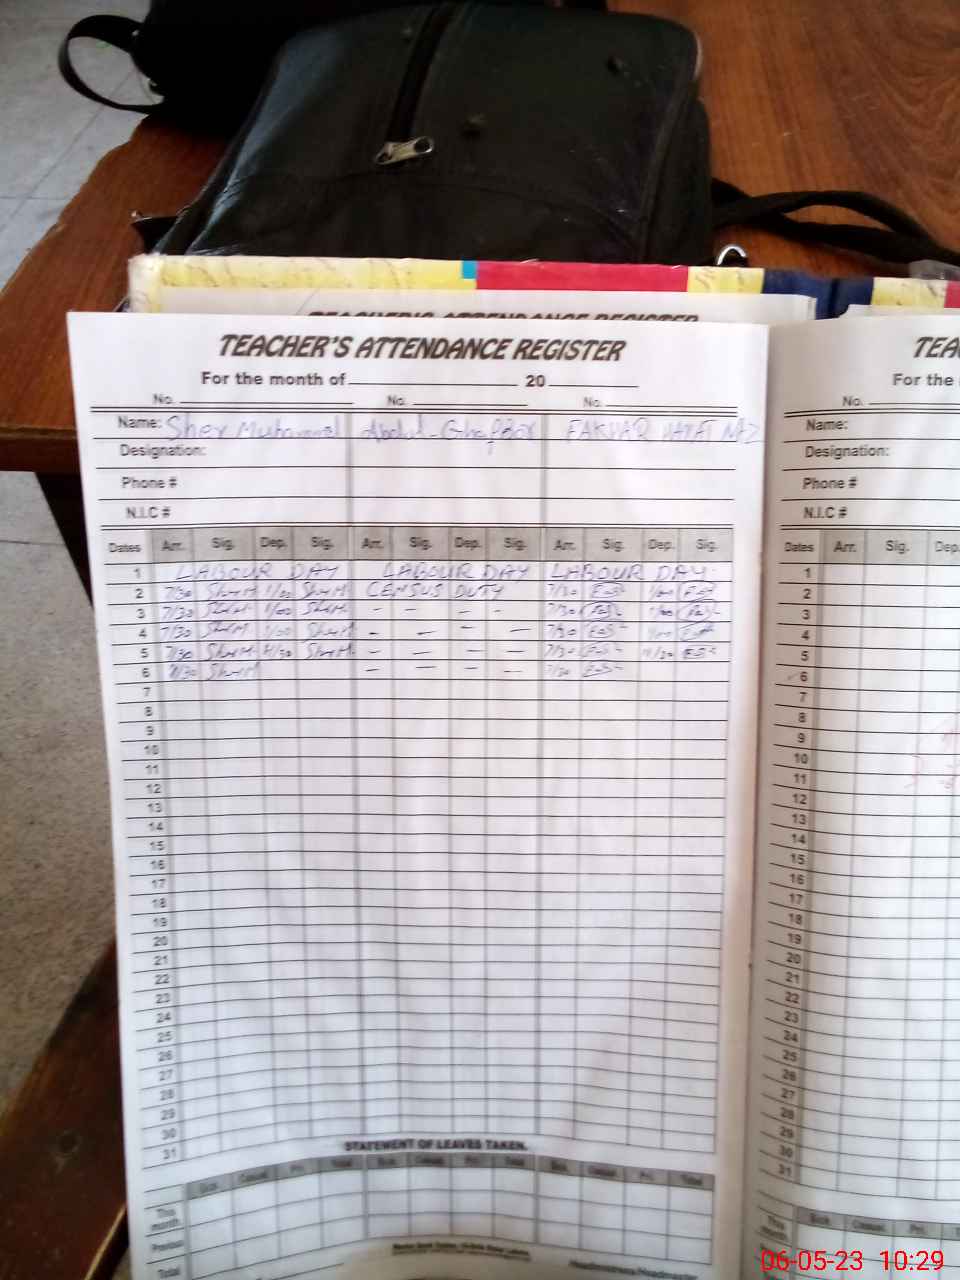 TEACHER'S ATTENDANCE REGISTER
TEACHER'S ATTENDANCE REGISTER TEA
For the month of 20 For the
No. No. No. No.
Name: Sher Muhammad Abdul-Ghaffar FAKHAR HAYAT Name:
Designation: Designation:
Phone # Phone #
N.I.C # N.I.C #
Dates Arr. Sig. Dep. Sig. Arr. Sig. Dep. Sig. Arr. Sig. Dep. Sig. Dates Arr. Sig. Dep.
1 LABOUR DAY LABOUR DAY LABOUR DAY 1
2 7/30 SherM. 1/00 SherM. CENSUS DUTY 7/30 1/00 2
3 7/30 SherM. 1/00 SherM. - - - - 7/30 1/00 3
4 7/30 SherM. 1/00 SherM. - - - - 7/30 1/00 4
5 7/30 SherM. SherM. - - - - 7/30 5
6 7/30 SherM - - - - 7/30 6
7 7
8 8
9 9
10 10
11 11
12 12
13 13
14 14
15 15
16 16
17 17
18 18
19 19
20 20
21 21
22 22
23 23
24 24
25 25
26 26
27 27
28 28
29 29
30 30
31 31
STATEMENT OF LEAVES TAKEN.
Sick Casual Pri. Total Sick Casual Pri. Total Sick Casual Pri. Total
This month This month
Sick Casual Pri.
Previous Previous
Total Total
Headmistress/Headmaster
06-05-23 10:29